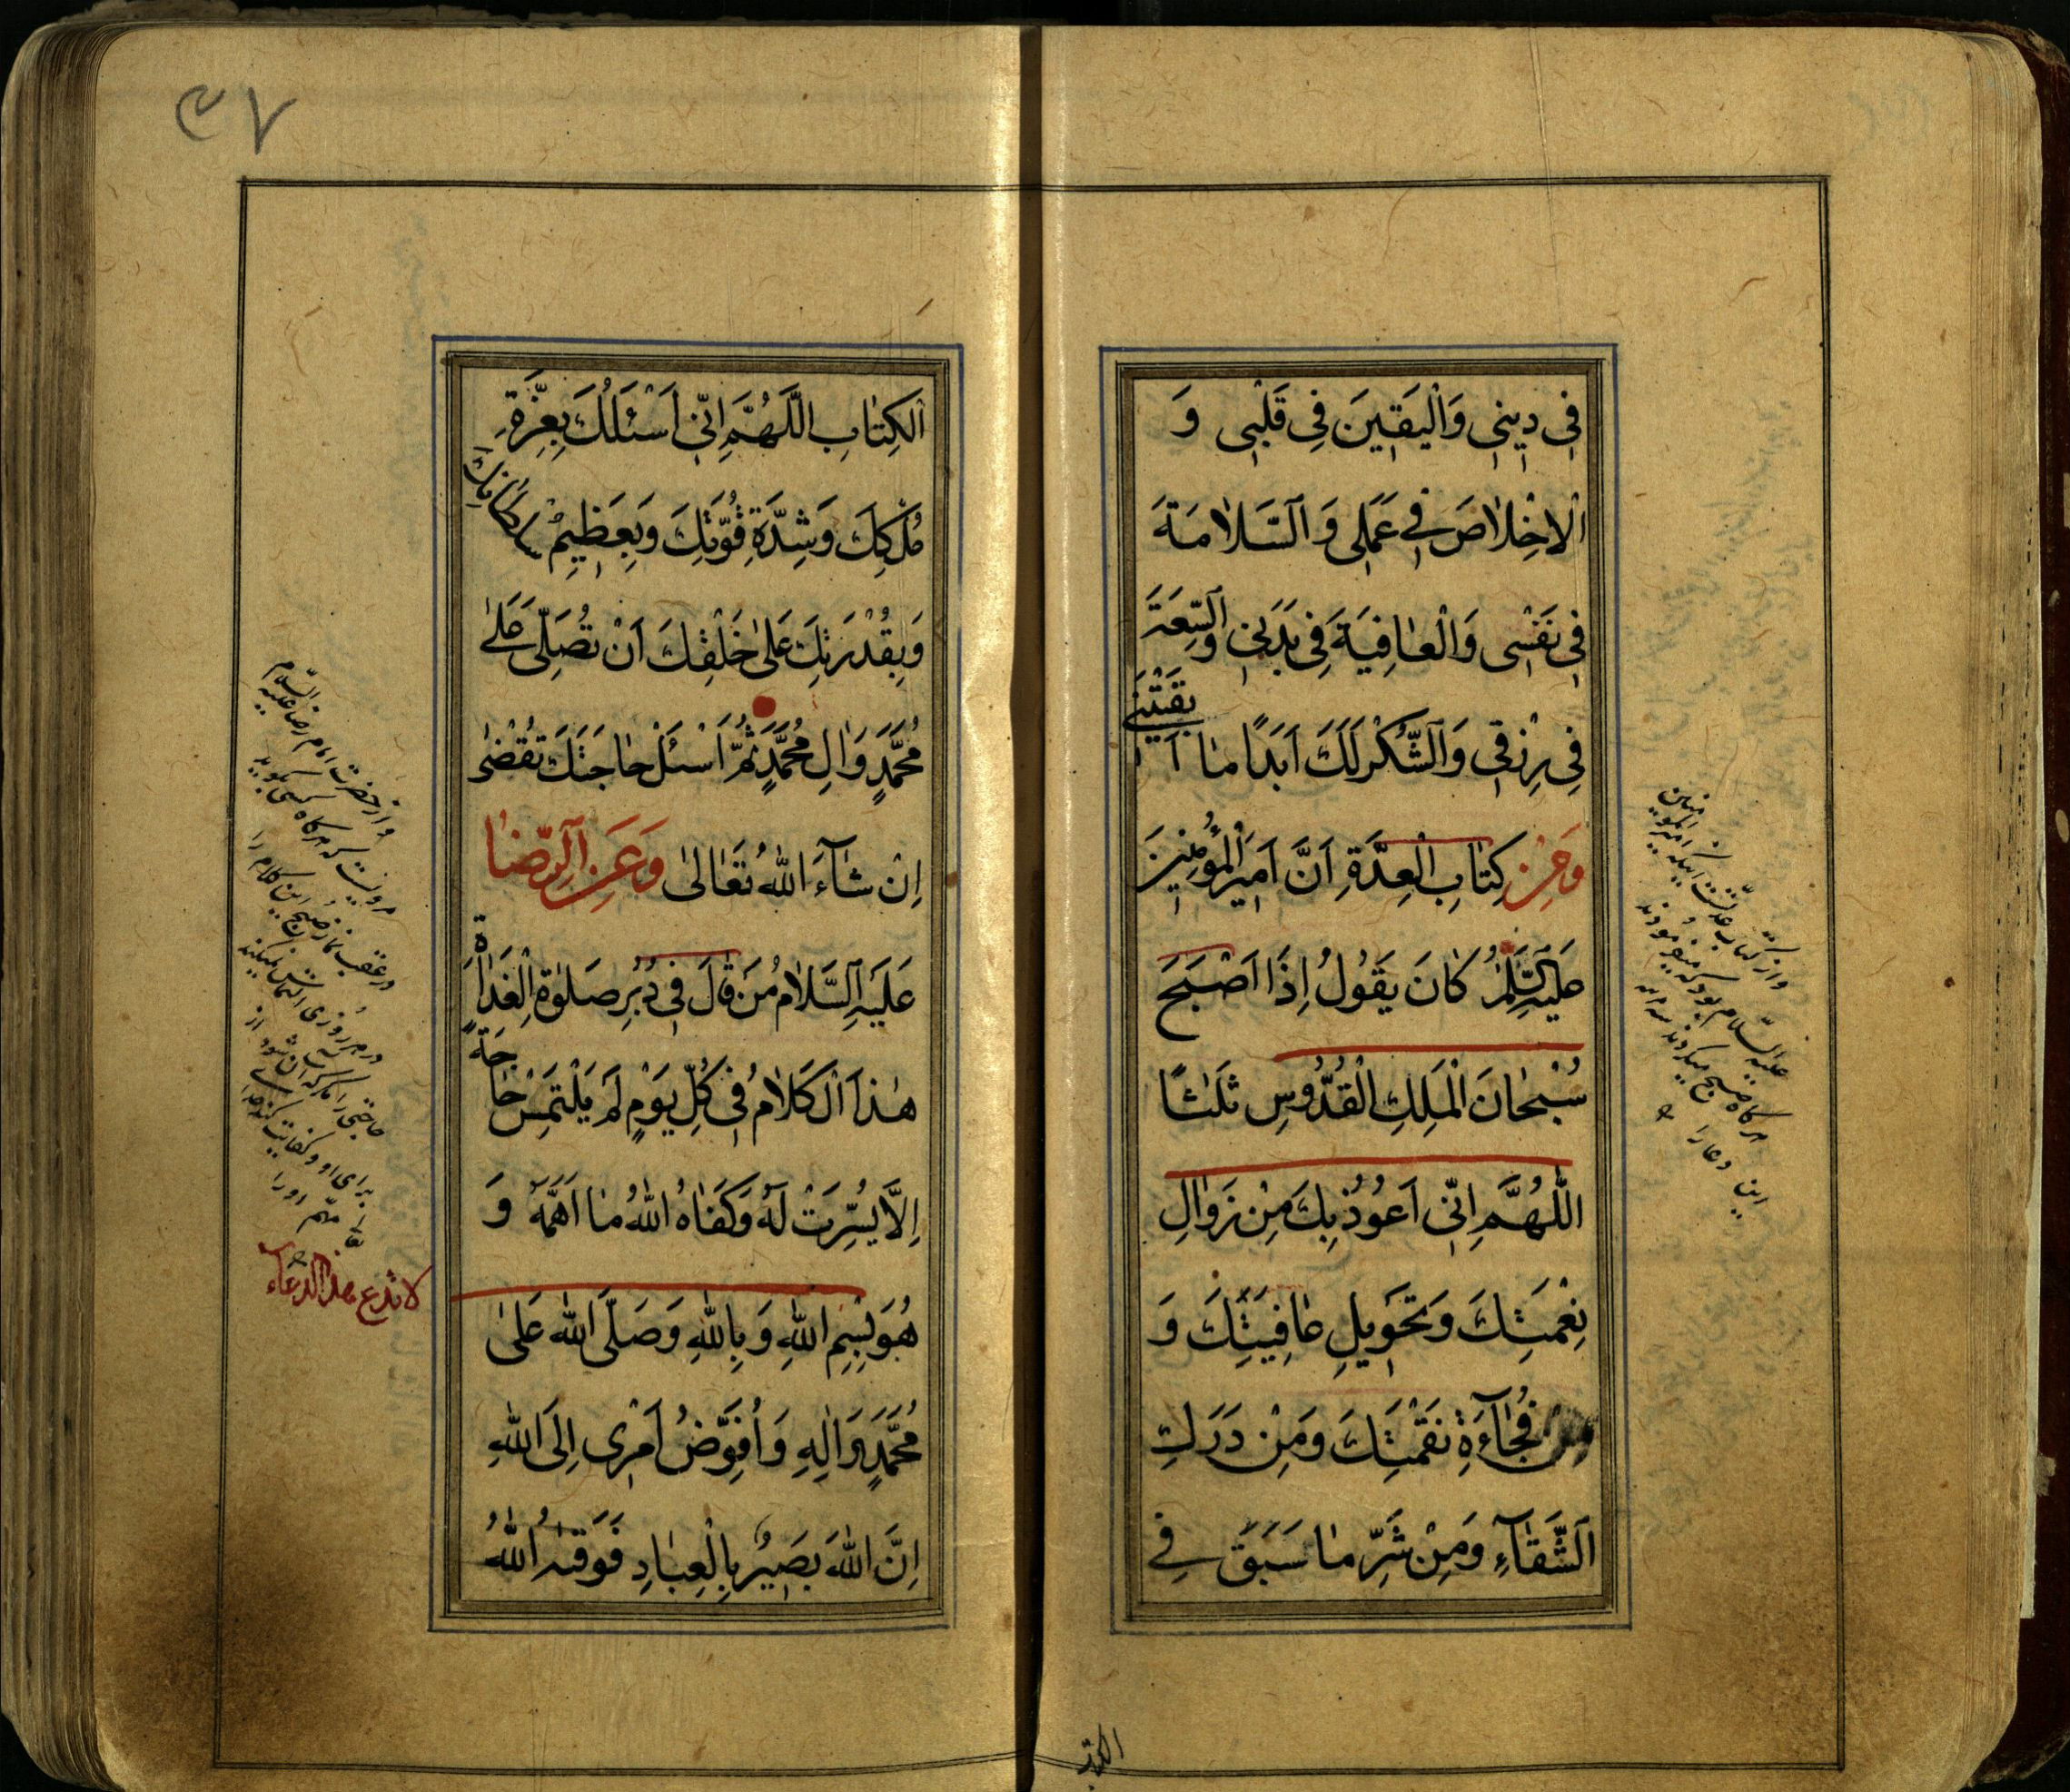 فِى دِينِى وَالْيَقِينَ فِى قَلْبِى وَ
الْاِخْلَاصَ فِى عَمَلِى وَالسَّلَامَةَ
فِى نَفْسِى وَالْعَافِيَةَ فِى بَدَنِى وَالسِّعَةَ
فِى رِزْقِى وَالشُّكْرَ لَكَ اَبَدًا مَا اَبْقَيْتَنِى
وَعَنْ كِتَابِ الْعِدَّةِ اَنَّ اَمِيرَ الْمُؤْمِنِينَ
عَلَيْهِ السَّلَامُ كَانَ يَقُولُ اِذَا اَصْبَحَ
سُبْحَانَ الْمَلِكِ الْقُدُّوسِ ثَلٰثًا
اللّٰهُمَّ اِنِّى اَعُوذُ بِكَ مِنْ زَوَالِ
نِعْمَتِكَ وَتَحْوِيلِ عَافِيَتِكَ وَ
مِنْ فُجَآءَةِ نَقْمَتِكَ وَمِنْ دَرَكِ
الشَّقَآءِ وَمِنْ شَرِّ مَا سَبَقَ فِى
واز كتاب عدّتست اينكه امير المؤمنين
عليه السّلام بود كه ميفرمودند
هر گاه صبح ميكردند سه مرتبه
اين دعا را
الكتاب
٤٧
الْكِتَابِ اللَّهُمَّ اِنِّى اَسْئَلُكَ بِعِزَّةِ
مُلْكِكَ وَشِدَّةِ قُوَّتِكَ وَبِعَظِيمِ سُلْطَانِكَ
وَبِقُدْرَتِكَ عَلٰى خَلْقِكَ اَنْ تُصَلِّىَ عَلٰى
مُحَمَّدٍ وَاٰلِ مُحَمَّدٍ ثُمَّ اَسْئَلْ حَاجَتَكَ تُقْضٰى
اِنْ شَآءَ اللّٰهُ تَعَالٰى وَعَنِ الرِّضَا
عَلَيْهِ السَّلَامُ مَنْ قَالَ فِى دُبُرِ صَلٰوةِ الْغَدَاةِ
هٰذَا الْكَلَامُ فِى كُلِّ يَوْمٍ لَمْ يَلْتَمِسْ حَاجَةً
اِلَّا يُسِّرَتْ لَهُ وَكَفَاهُ اللّٰهُ مَا اَهَمَّهُ وَ
هُوَ بِسْمِ اللّٰهِ وَبِاللّٰهِ وَصَلَّى اللّٰهُ عَلٰى
مُحَمَّدٍ وَاٰلِهِ وَاُفَوِّضُ اَمْرِى اِلَى اللّٰهِ
اِنَّ اللّٰهَ بَصِيرٌ بِالْعِبَادِ فَوَقٰهُ اللّٰهُ
واز حضرت امام رضا عليه السّلام
مرويست كه هر گاه كسى بگويد
در عقب نماز صبح اين كلام را
در هر روزى التماس نميكند
حاجتى را مگر آسان شود از
براى او و كفايت كند خداى
تعالى مهمّ او را
لا تدع هذا الدعاء